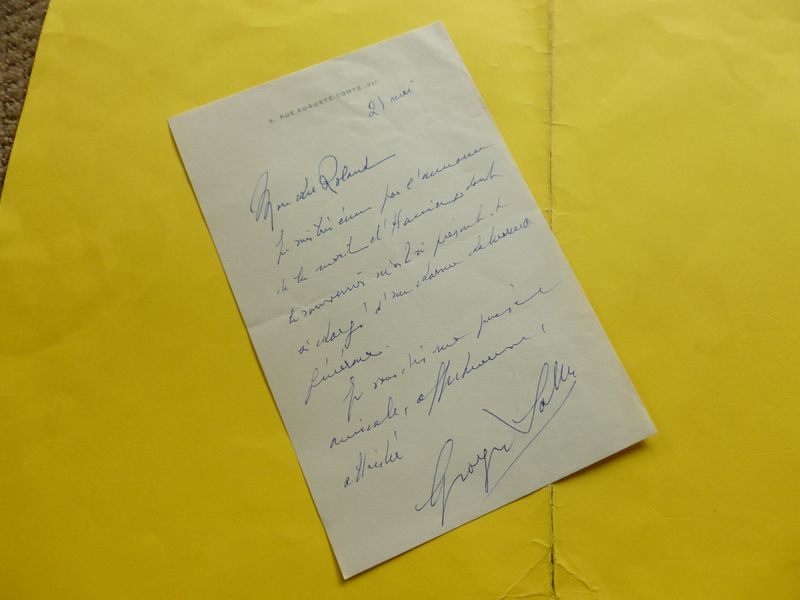 3, RUE AUGUSTE COMTE, VI
21 mai
Mon cher Roland
Je suis très ému par l'annonce
de la mort d'Henriette dont
le souvenir m'est si présent et
si chargé d'une
généreuse.
Je vous dis ma pensée
amicale, affectueuse,
attristée
Georges Salles